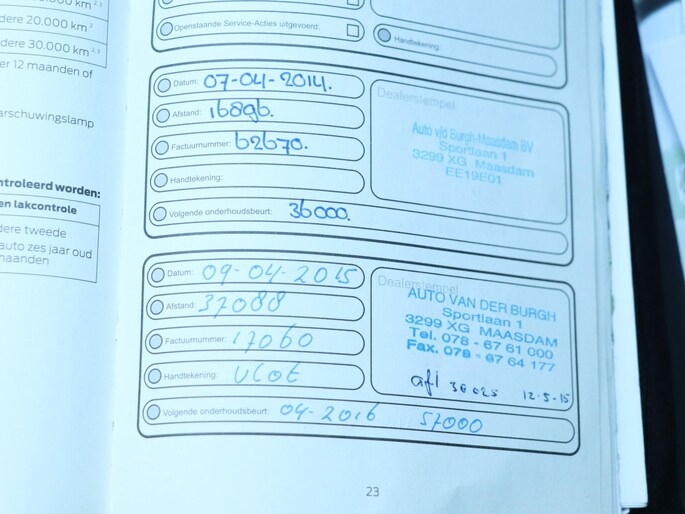 0.000 km 2,3
dere 20.000 km 2
dere 30.000 km 2,3
er 12 maanden of
arschuwingslamp
ntroleerd worden:
en lakcontrole
dere tweede
auto zes jaar oud
maanden
Openstaande Service-Acties uitgevoerd:
Handtekening:
Datum: 07-04-2014.
Afstand: 16896.
Factuurnummer: 62670.
Handtekening:
Volgende onderhoudsbeurt: 36000.
Dealerstempel
Auto v/d Burgh-Maasdam BV
Sportlaan 1
3299 XG Maasdam
EE19E01
Datum: 09-04-2015
Afstand: 37088
Factuurnummer: 17060
Handtekening: Vlot
Volgende onderhoudsbeurt: 04-2016 57000
Dealerstempel
AUTO VAN DER BURGH
Sportlaan 1
3299 XG MAASDAM
Tel. 078 - 67 61 000
Fax. 078 - 67 64 177
afl 38025 12-5-15
23